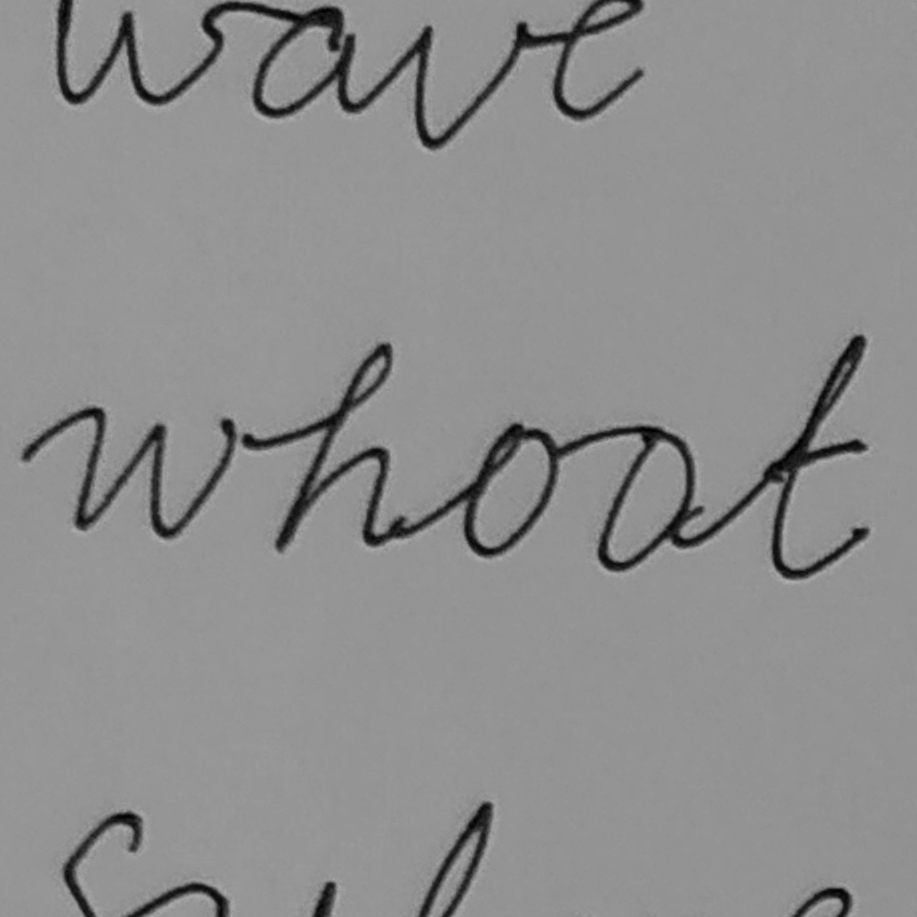 wave
whoat